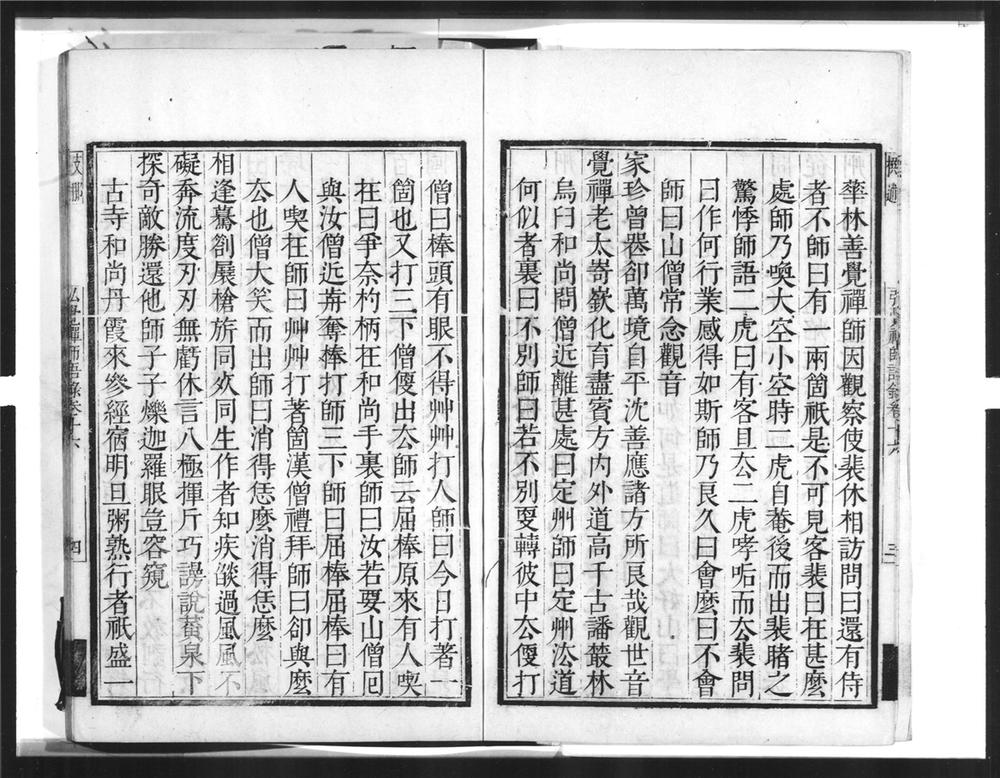 華林善覺禪師因觀察使裴休相訪問曰還有侍
者不師曰有一兩箇祇是不可見客裴曰在甚麼
處師乃喚大空小空時二虎自菴後而出裴睹之
驚悸師語二虎曰有客且厺二虎哮吼而厺裴問
曰作何行業感得如斯師乃良久曰會麼曰不會
師曰山僧常念觀音
家珍曾罄卻萬境自平沈善應諸方所良哉觀世音
覺禪老太嵜嶔化育盡賓方內外道高千古譒叢林
烏臼和尚問僧近離甚處曰定州師曰定州法道
何似者裏曰不別師曰若不別叓轉彼中厺偠打
僧曰棒頭有眼不得艸艸打人師曰今日打著一
箇也又打三下僧偠出厺師云屈棒原來有人喫
在曰爭奈杓柄在和尚手裏師曰汝若要山僧回
與汝僧近歬奪棒打師三下師曰屈棒屈棒曰有
人喫在師曰艸艸打著箇漢僧禮拜師曰卻與麼
厺也僧大笑而出師曰消得恁麼消得恁麼
相逢驀劄展槍旂同歿同生作者知疾燄過風風不
礙奔流度刃刃無虧休言八極揮斤巧謾說黃泉下
探奇敵勝還他師子子爍迦羅眼豈容窺
古寺和尚丹霞來參經宿明旦粥熟行者祇盛一
弘覺禪師語錄卷十六
四